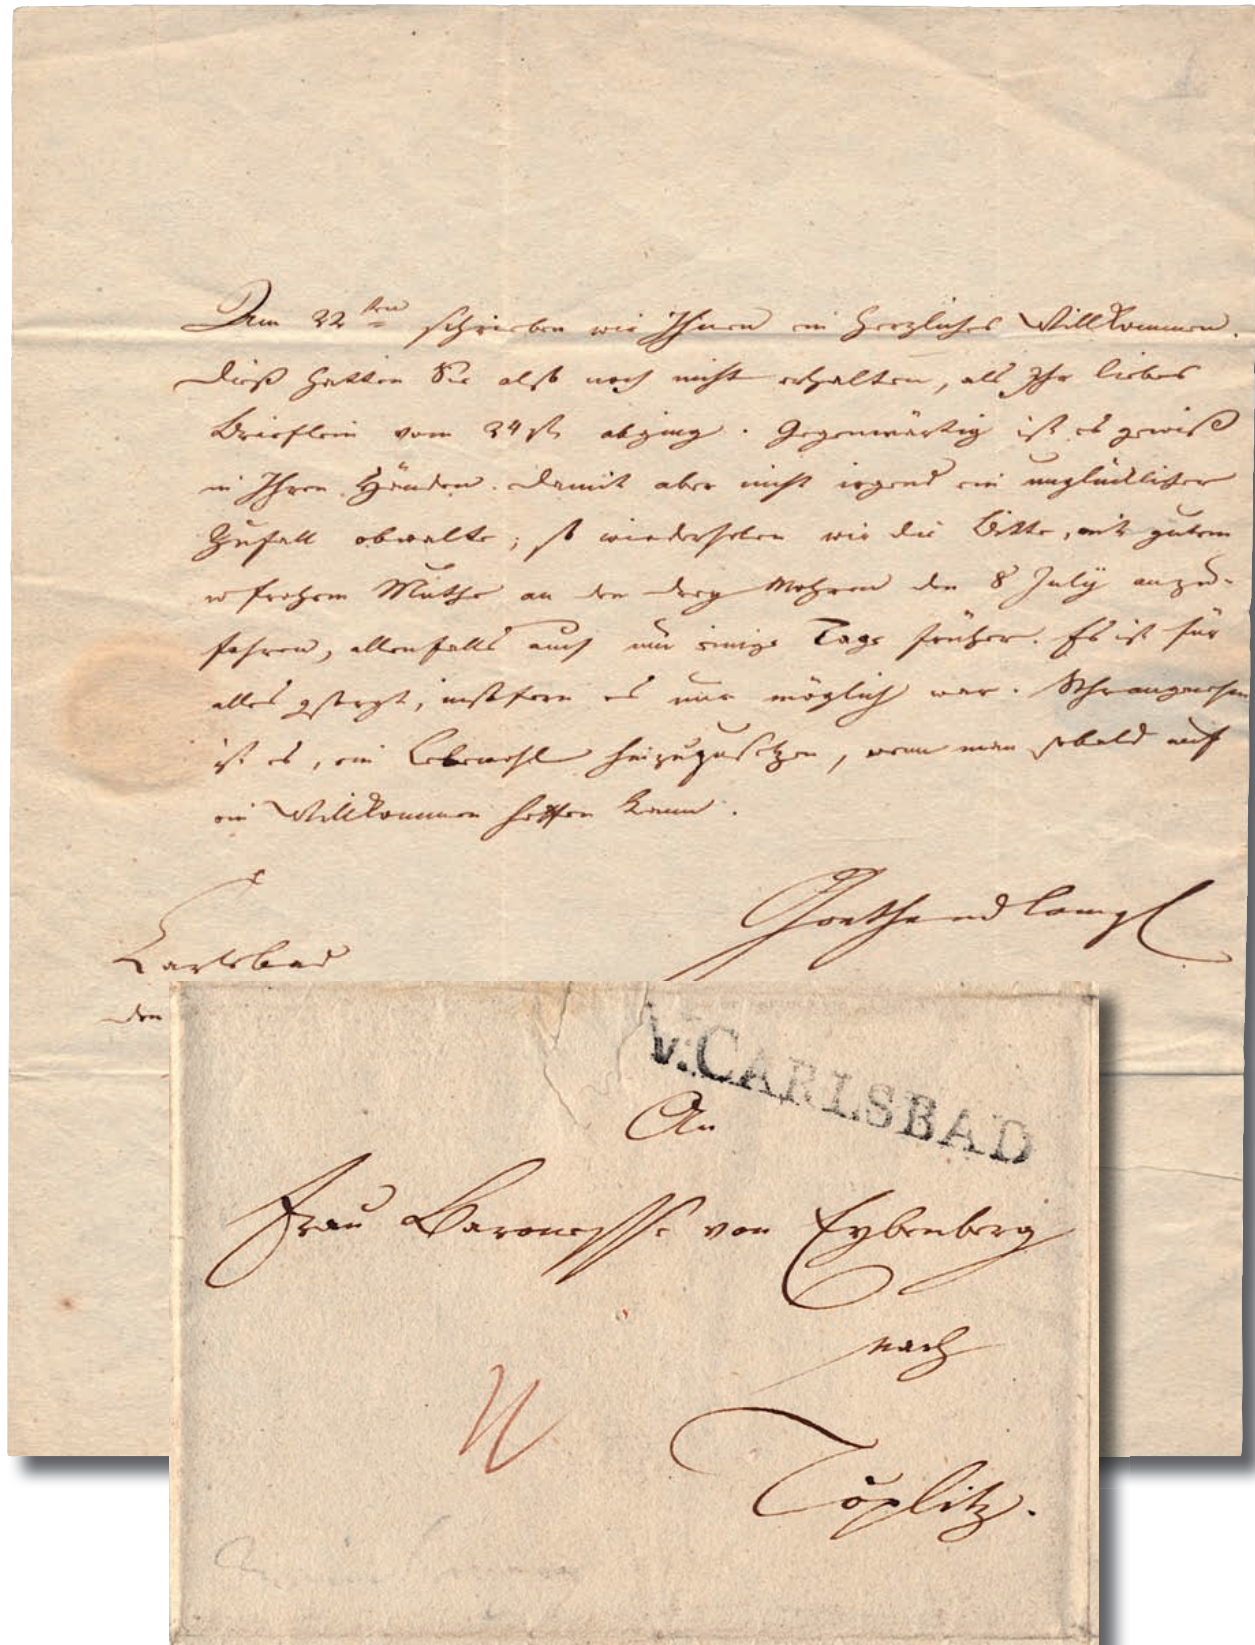 Am 22ten schrieben wir Ihnen ein herzliches Willkommen.
Dieß hatten Sie also noch nicht erhalten, als Ihr liebes
Brieflein vom 24st abging. Gegenwärtig ist es gewiß
in Ihren Händen. Damit aber nicht irgend ein unglücklicher
Zufall obwalte, so wiederholen wir die Bitte, mit gutem
u frohem Muthe an den drey Mohren den 8 July anzu-
fahren, allenfalls auch nur einige Tage früher. Es ist für
alles gesorgt, insofern es nur möglich war. Sehr angenehm
ist es, ein Lebewohl hinzuzusetzen, wenn man sobald auf
ein Willkommen hoffen kann.
Karlsbad
den
v. CARLSBAD
An
Frau Baronesse von Eybenberg
nach
Töplitz.